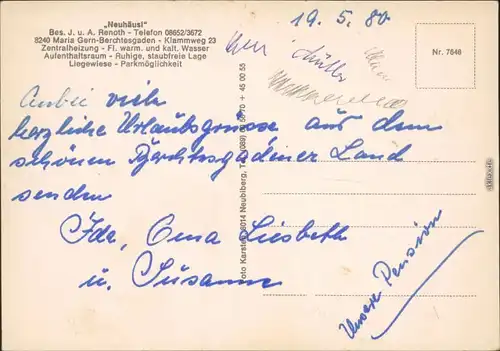 „Neuhäusl“
Bes. J. u. A. Renoth - Telefon 08652/3672
8240 Maria Gern-Berchtesgaden - Klammweg 23
Zentralheizung - Fl. warm. und kalt. Wasser
Aufenthaltsraum - Ruhige, staubfreie Lage
Liegewiese - Parkmöglichkeit
19. 5. 80
Nr. 7648
viele
herzliche Urlaubsgrüsse aus dem
schönen Berchtesgadener Land
senden
Ida, Oma Liesbeth
u. Susanne
Unsere Pension
8014 Neubiberg